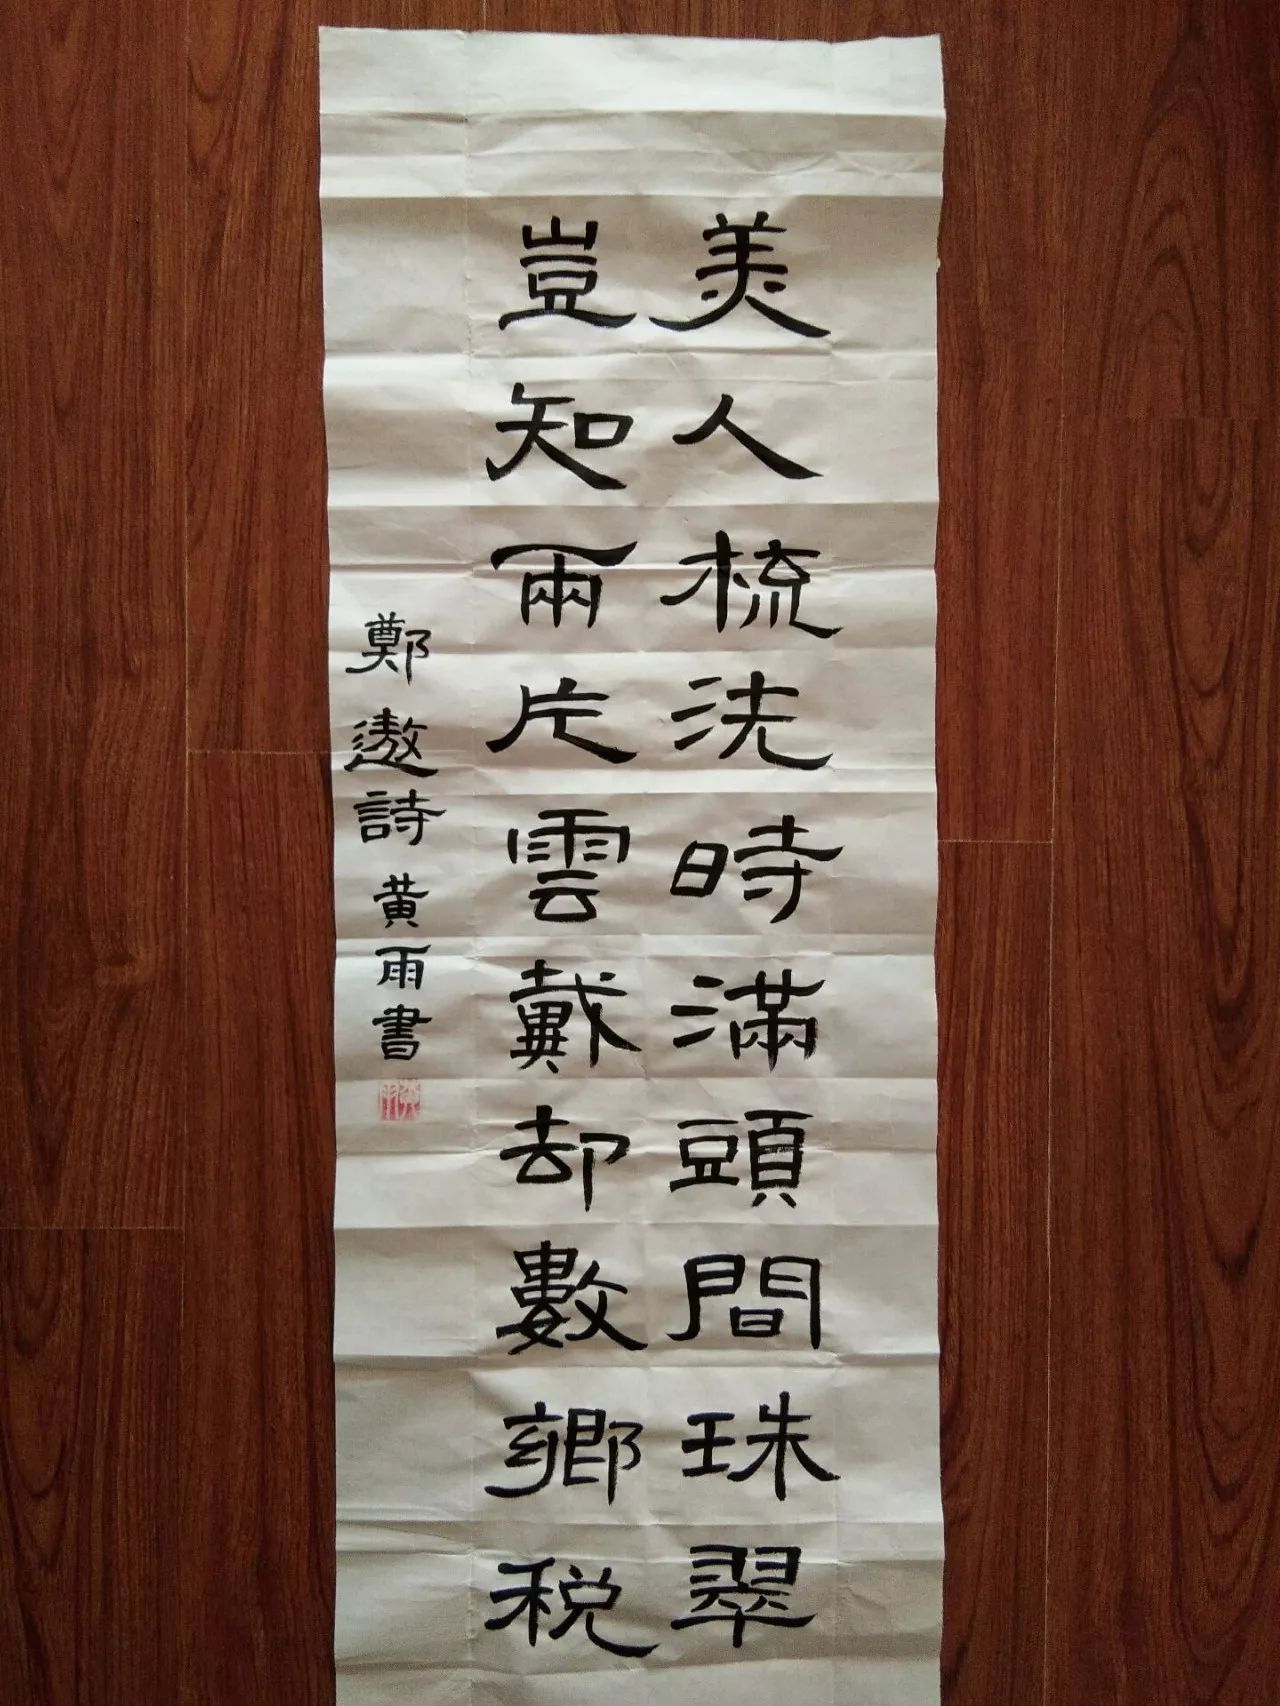 美人梳洗時滿頭間珠翠
豈知兩片雲戴却數鄉税
鄭遨詩黄雨書